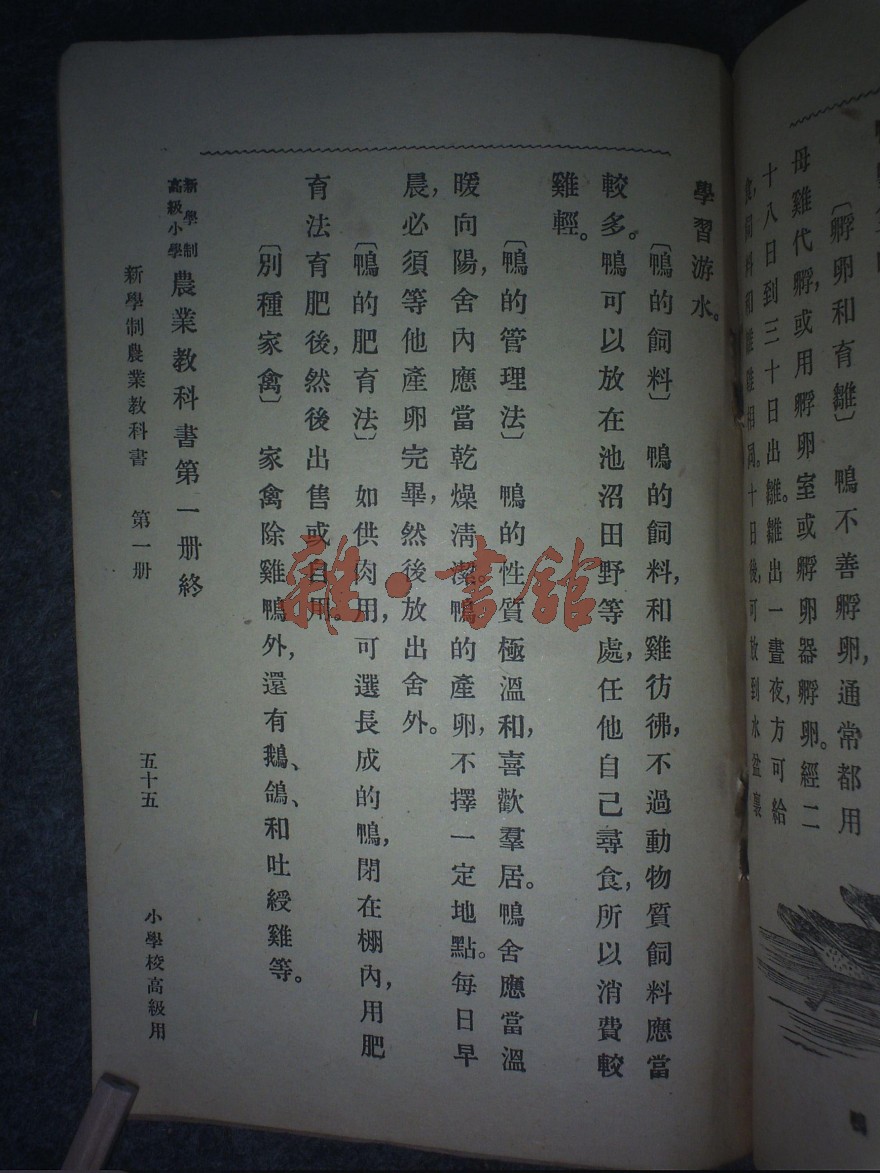 〔孵卵和育雛〕 鴨不善孵卵，通常都用
母雞代孵，或用孵卵室或孵卵器孵卵。經二
十八日到三十日出雛。雛出一晝夜，方可給
食，飼料和雞雛相同。十日後，可放到水盆裏
學習游水。
〔鴨的飼料〕 鴨的飼料，和雞彷彿，不過動物質飼料應當
較多。鴨可以放在池沼田野等處，任他自己尋食，所以消費較
雞輕。
〔鴨的管理法〕 鴨的性質極溫和，喜歡羣居。鴨舍應當溫
暖向陽，舍內應當乾燥淸潔。鴨的產卵，不擇一定地點。每日早
晨，必須等他產卵完畢，然後放出舍外。
〔鴨的肥育法〕 如供肉用，可選長成的鴨，閉在棚內，用肥
育法育肥後，然後出售或自用。
〔別種家禽〕 家禽除雞鴨外，還有鵝、鴿、和吐綬雞等。
新學制高級小學農業教科書第一册終
新學制農業教科書 第一册 五十五 小學校高級用
雜·書館